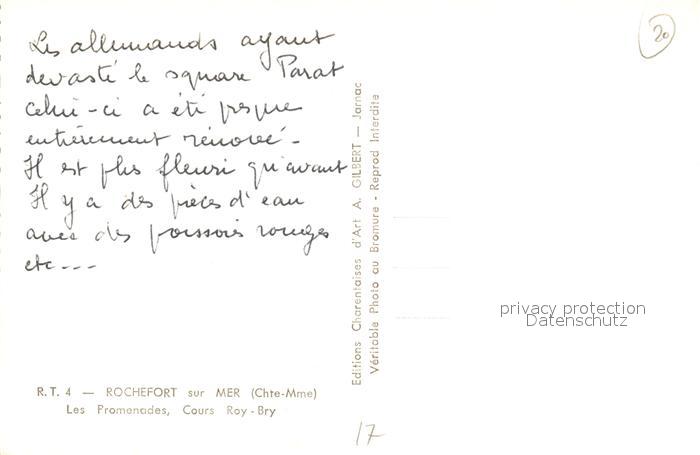 Les allemands ayant
devasté le square Parat
celui-ci a été presque
entièrement rénové -
Il est plus fleuri qu'avant
Il y a des pièces d'eau
avec des poissons rouges
etc ---
20
Editions Charentaises d'Art A. GILBERT — Jarnac
Véritable Photo au Bromure - Reprod Interdite
privacy protection
Datenschutz
R.T. 4 — ROCHEFORT sur MER (Chte-Mme)
Les Promenades, Cours Roy-Bry
17